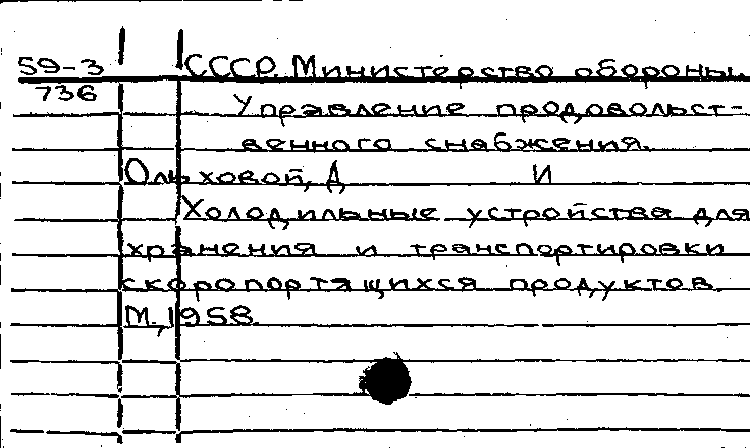 59-3 СССР. Министерство обороны.
736 Управление продовольст-
венного снабжения.
Ольховой, Д И
Холодильные устройства для
хранения и транспортировки
скоропортящихся продуктов.
М., 1958.